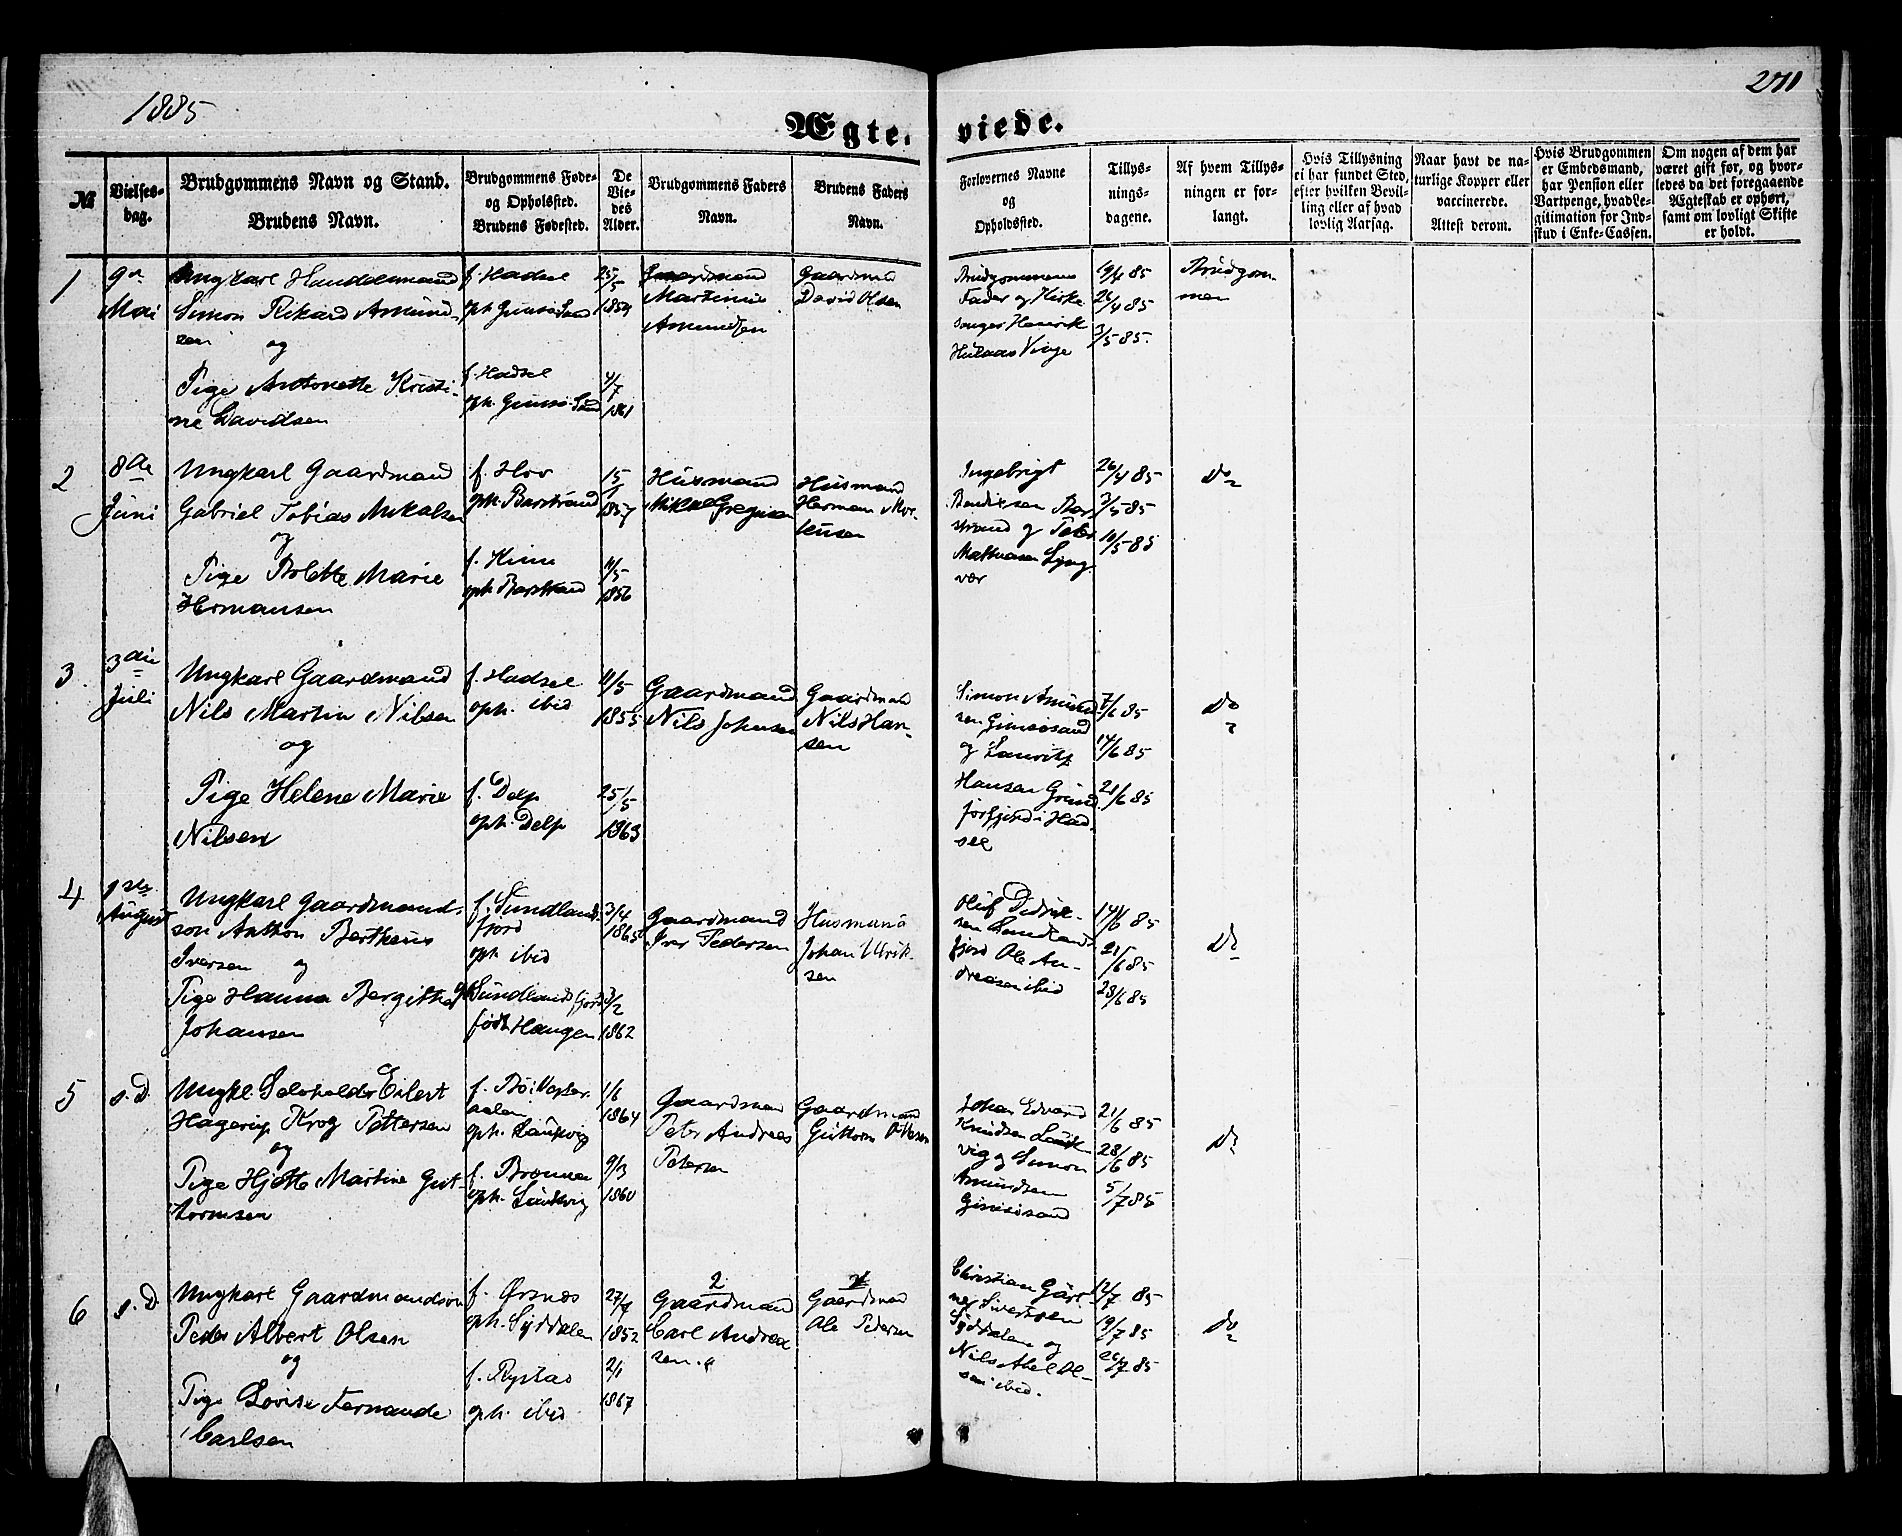 1885
271
Ægte.
viede.
№
Vielses-
dag.
Brudgommens Navn og Stand.
Brudens Navn.
Brudgommens Føde-
og Opholsfted.
Brudens Fødested.
De
Vie-
des
Alder.
Brudgommens Faders
Navn.
Brudens Faders
Navn.
Forlovernes Navne
og
Opholdssted.
Tillys-
nings-
dagene.
Af hvem Tillys-
ningen er for-
langt.
Hvis Tillysning
ei har fundet Sted,
efter hvilken Bevil-
ling eller af hvad
lovlig Aarsag.
Naar havt de na-
turlige Kopper eller
vaccinerede.
Attest derom.
Hvis Brudgommen
er Embedsmand,
har Pension eller
Vartpenge, hvad Le-
gitimation for Ind-
skud i Enke-Cassen.
Om nogen af dem har
været gift før, og hvor-
ledes da det foregaaende
Ægteskab er ophørt,
samt om lovligt Skifte
er holdt.
1
9de
Mai
Ungkarl Handelsmand
Simon Rikard Amund-
sen og
Pige Antonette Kristi-
ne Davidsen
f. Hadsel
oph. Gimsøsand
25/5
1859
f. Hadsel
oph. Gimsø Sand
4/7
1861
Gaardmand
Martinus
Amundsen
Gaardmd
David Olsen
Brudgommens
Fader og Kirke
sanger Henrik
Vinje
19/4 85
26/4 85
3/5 85
Brudgom-
men
2
8de
Juni
Ungkarl Gaardmand
Gabriel Tobias Mikalsen
og
Pige Bolette Marie
Hermansen
f. Hov
oph. Barstrand
15/1
1857
f. Hinø
oph. Barstrand
11/5
1856
Husmand
Mikal Gregusen
Husmand
Herman Mor-
tensen
Ingebrigt
Bendiksen Bar
strand og Peter
Mathiasen Lyng-
vær
26/4 85
3/5 85
10/5 85
Do
3
3die
Juli
Ungkarl Gaardmand
Nils Martin Nilsen
og
Pige Helene Marie
Nilsen
f. Hadsel
oph. ibid
11/5
1855
f. Delp
oph. Delp
25/5
1863
Gaardmand
Nils Johnsen
Gaardmand
Nils Han-
sen
Simon Amund
sen Gimsøsand
og Lauritz
Hansen Grund
førfjord i Had-
sel
7/6 85
14/6 85
21/6 85
Do
4
1ste
August
Ungkarl Gaardmand-
søn Anthon Bertheus
Iversen og
Pige Hanna Bergitha
Johansen
f. Sundlands
fjord
oph. ibid
3/4
1865
oph Sundlandsfjord
født Haugen
3/2
1862
Gaardmand
Iver Pedersen
Husmand
Johan Ulrik-
sen
Oluf Didrik-
sen Sundlands
fjord Ole An-
dreasen ibid
14/6 85
21/6 85
28/6 85
Do
5
s. D.
Ungkl. Selveholder Eilert
Hagerup Krog Pettersen
og
Pige Hjette Martine Gut-
tormsen
f. Bø i Vester
aalen
oph. Laukvig
1/6
1864
f. Brønnøe
oph. Laukvig
9/3
1860
Gaardman
Peter Andreas
Petersen
Gaardmand
Guttorm
Johan Edvard
Knudsen Lauk-
vig og Simon
Amundsen
Gimsøsand
21/6 85
28/6 85
5/7 85
Do
6
s. D
Ungkarl Gaardmandsøn
Peder Albert Olsen
og
Pige Lovise Fernande
Carlsen
f. Ørsnes
oph. Syddalen
27/7
1852
f. Rystad
oph. ibid
2/1
1867
2
Gaardmand
Carl Andrea
sen.
Gaardmand
Ole Pedersen
Christian Gärt-
ner Sivertsen
Syddalen og
Nils Abel Ol-
sen ibid.
12/7 85
19/7 85
26/7 85
Do